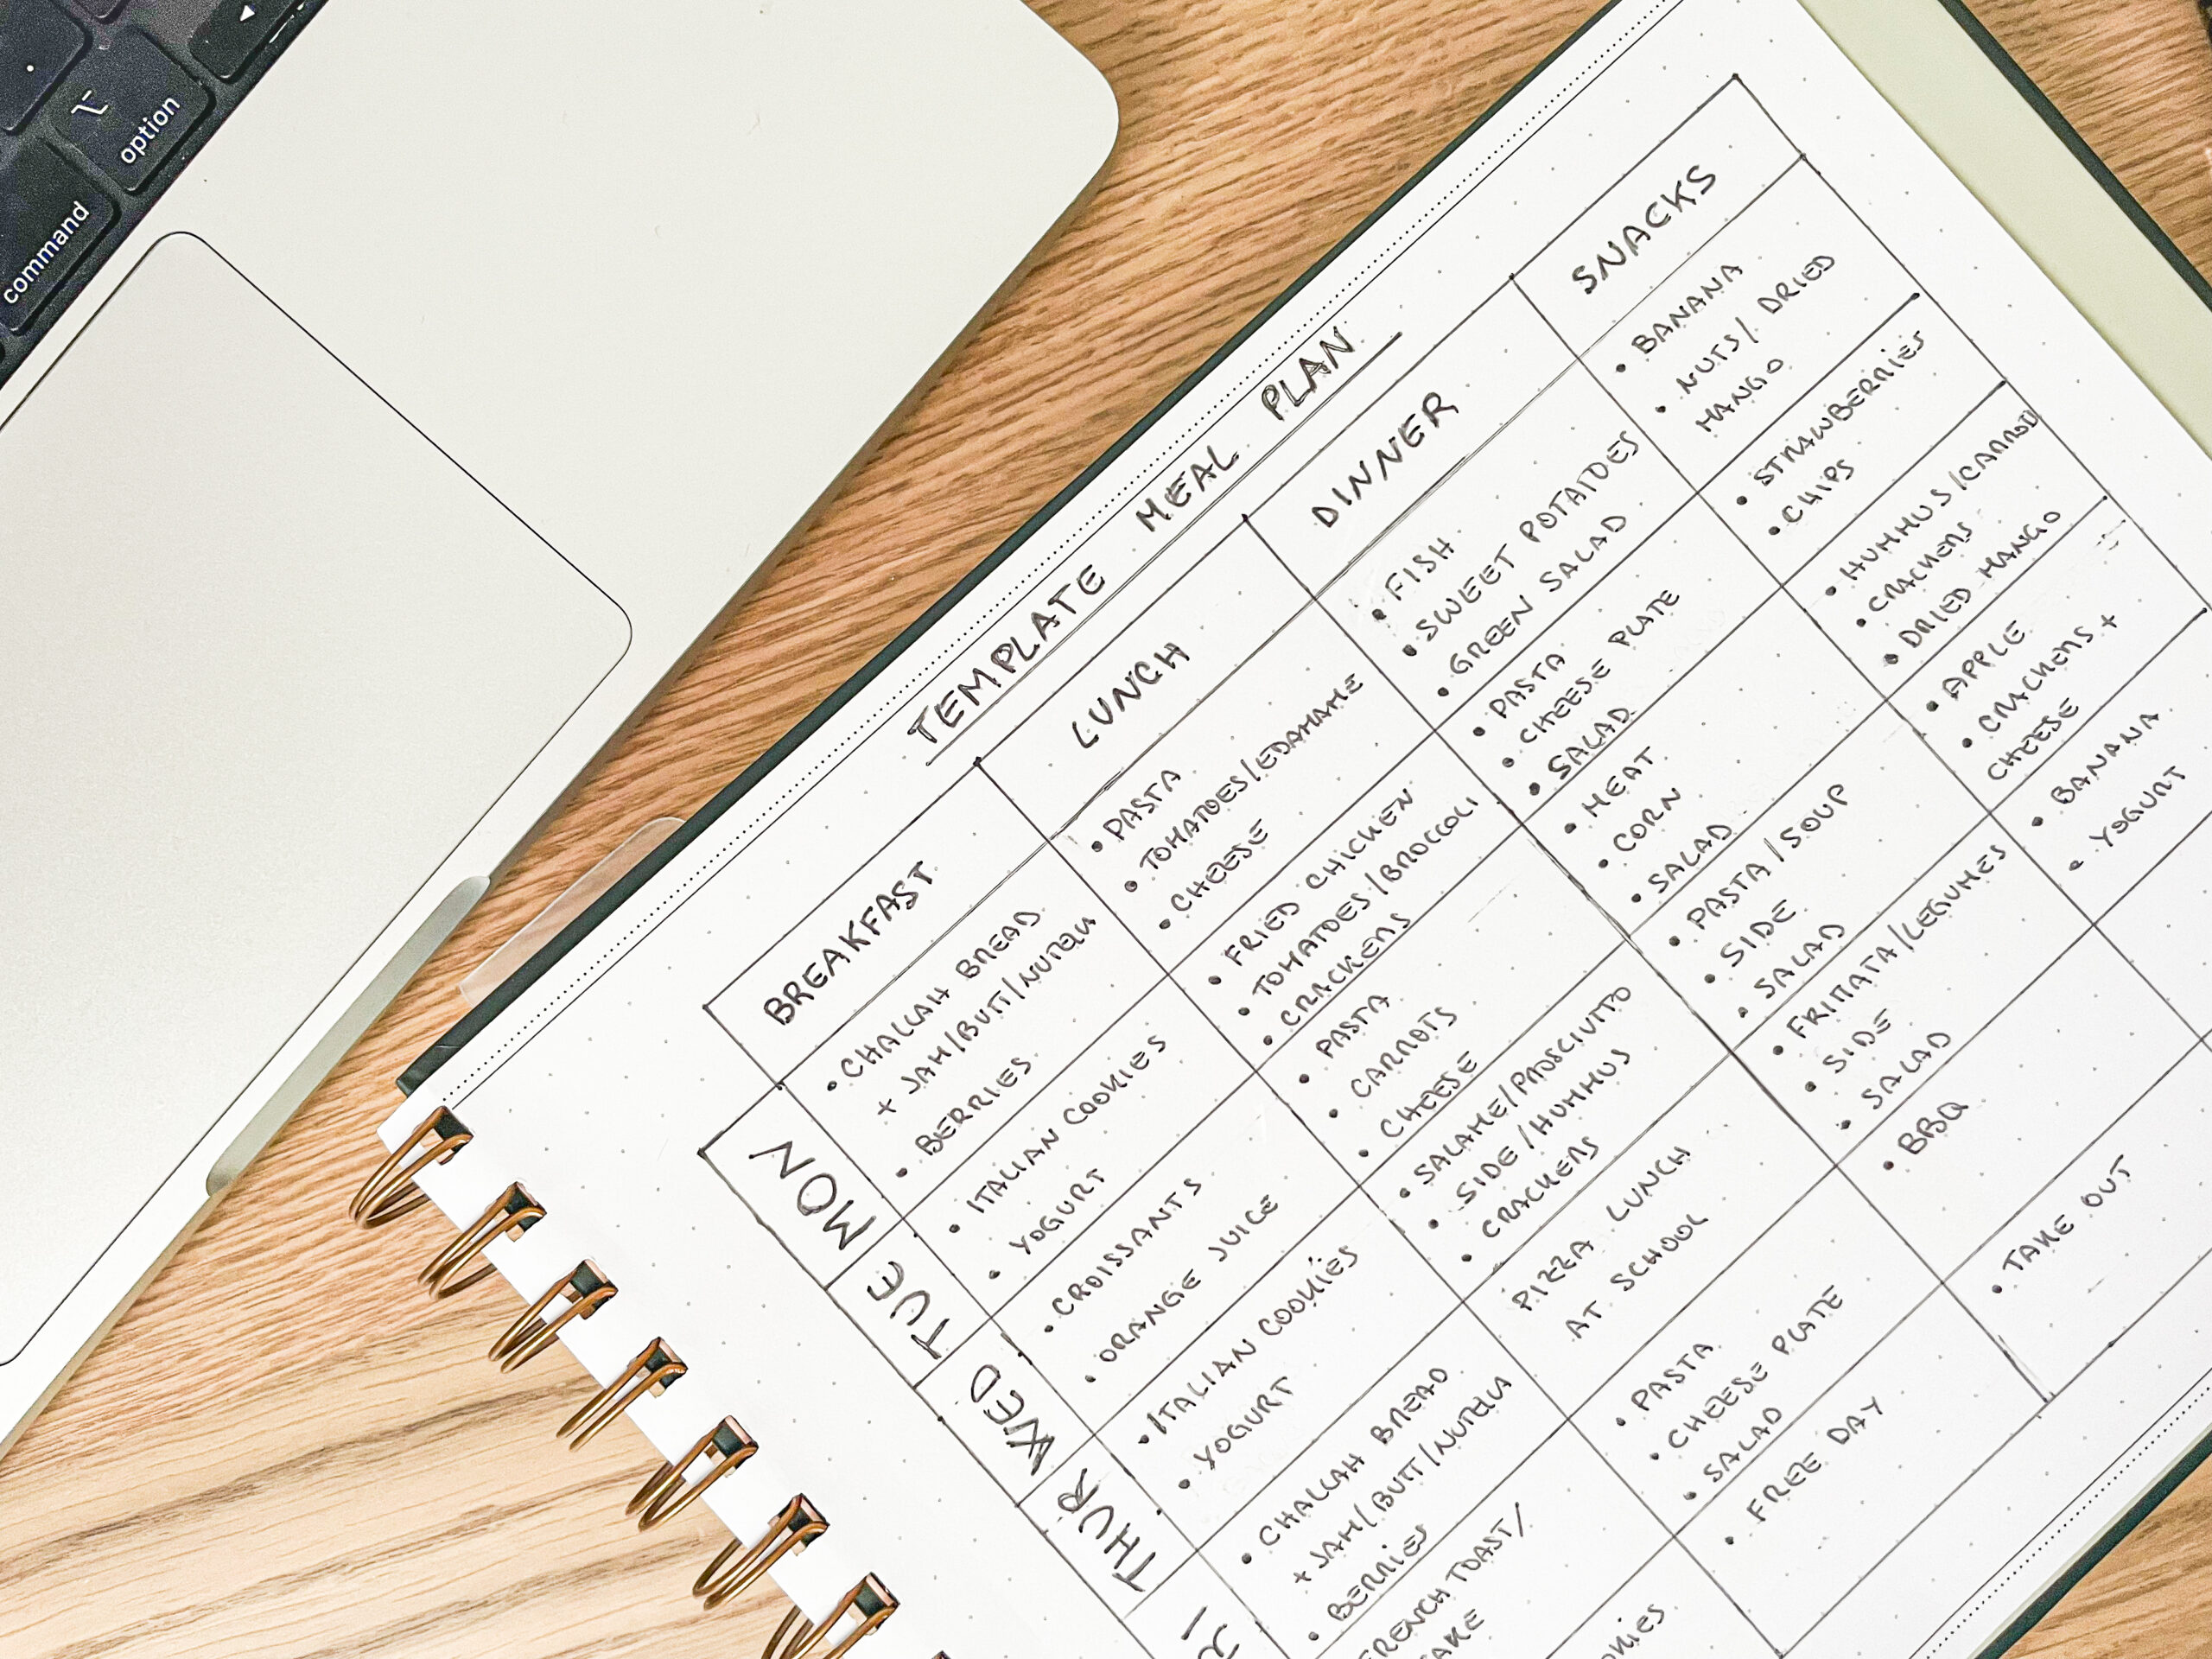 option
command
TEMPLATE MEAL PLAN
BREAKFAST
LUNCH
DINNER
SNACKS
MON
• CHALLAH BREAD
+ JAM/BUTT/NUTELLA
• BERRIES
• PASTA
• TOMATOES/EDAMAME
• CHEESE
• FISH
• SWEET POTATOES
• GREEN SALAD
• BANANA
• NUTS/ DRIED
MANGO
TUE
• ITALIAN COOKIES
• YOGURT
• FRIED CHICKEN
• TOMATOES/BROCCOLI
• CRACKERS
• PASTA
• CHEESE PLATE
• SALAD
• STRAWBERRIES
• CHIPS
WED
• CROISSANTS
• ORANGE JUICE
• PASTA
• CARROTS
• CHEESE
• MEAT
• CORN
• SALAD
• HUMMUS/CARROT
• CRACKERS
• DRIED MANGO
THUR
• ITALIAN COOKIES
• YOGURT
• SALAME/PROSCIUTTO
• SIDE/HUMMUS
• CRACKERS
• PASTA/SOUP
• SIDE
• SALAD
• APPLE
• CRACKERS +
CHEESE
• CHALLAH BREAD
+ JAM/BUTT/NUTELLA
• BERRIES
PIZZA LUNCH
AT SCHOOL
• FRITTATA/LEGUMES
• SIDE
• SALAD
• BANANA
• YOGURT
FRENCH TOAST/
• PASTA
• CHEESE PLATE
• SALAD
• BBQ
• FREE DAY
• TAKE OUT